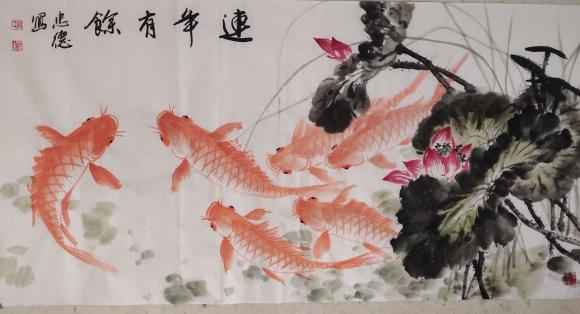 連年有餘
忠德
寫